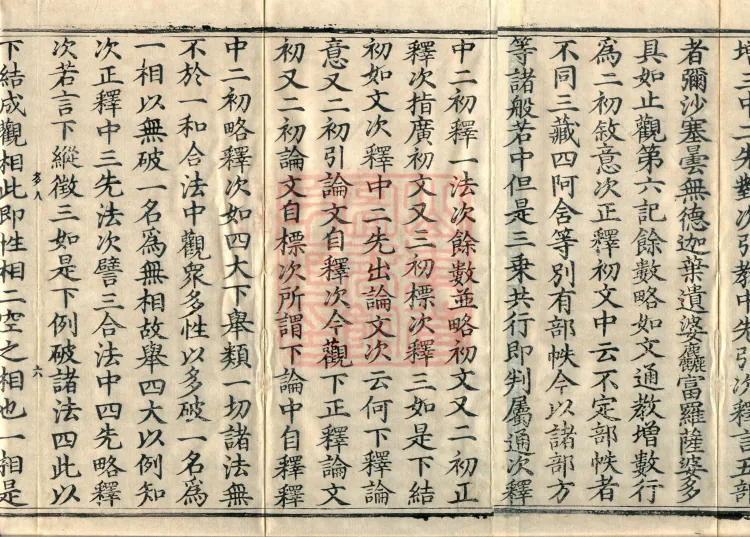 増三中二先對次引教中先引次釋言五部
者彌沙塞曇無德迦葉遺婆麤富羅薩婆多
具如止觀第六記餘數略如文通教增數行
爲二初敘意次正釋初文中云不定部帙者
不同三藏四阿含等別有部帙今以諸部方
等諸般若中但是三乘共行即判屬通次釋
中二初釋一法次餘數並略初文又二初正
釋次指廣初文又三初標次釋三如是下結
初如文次釋中二先出論文次云何下釋論
意又二初引論文自釋次今觀下正釋論文
初又二初論文自標次所謂下論中自釋釋
中二初略釋次如四大下舉類一切諸法無
不於一和合法中觀衆多性以多破一名爲
一相以無破一名爲無相故舉四大以例知
次正釋中三先法次譬三合法中四先略釋
次若言下縱徵三如是下例破諸法四此以
六
下結成觀相此即性相二空之相也一相是